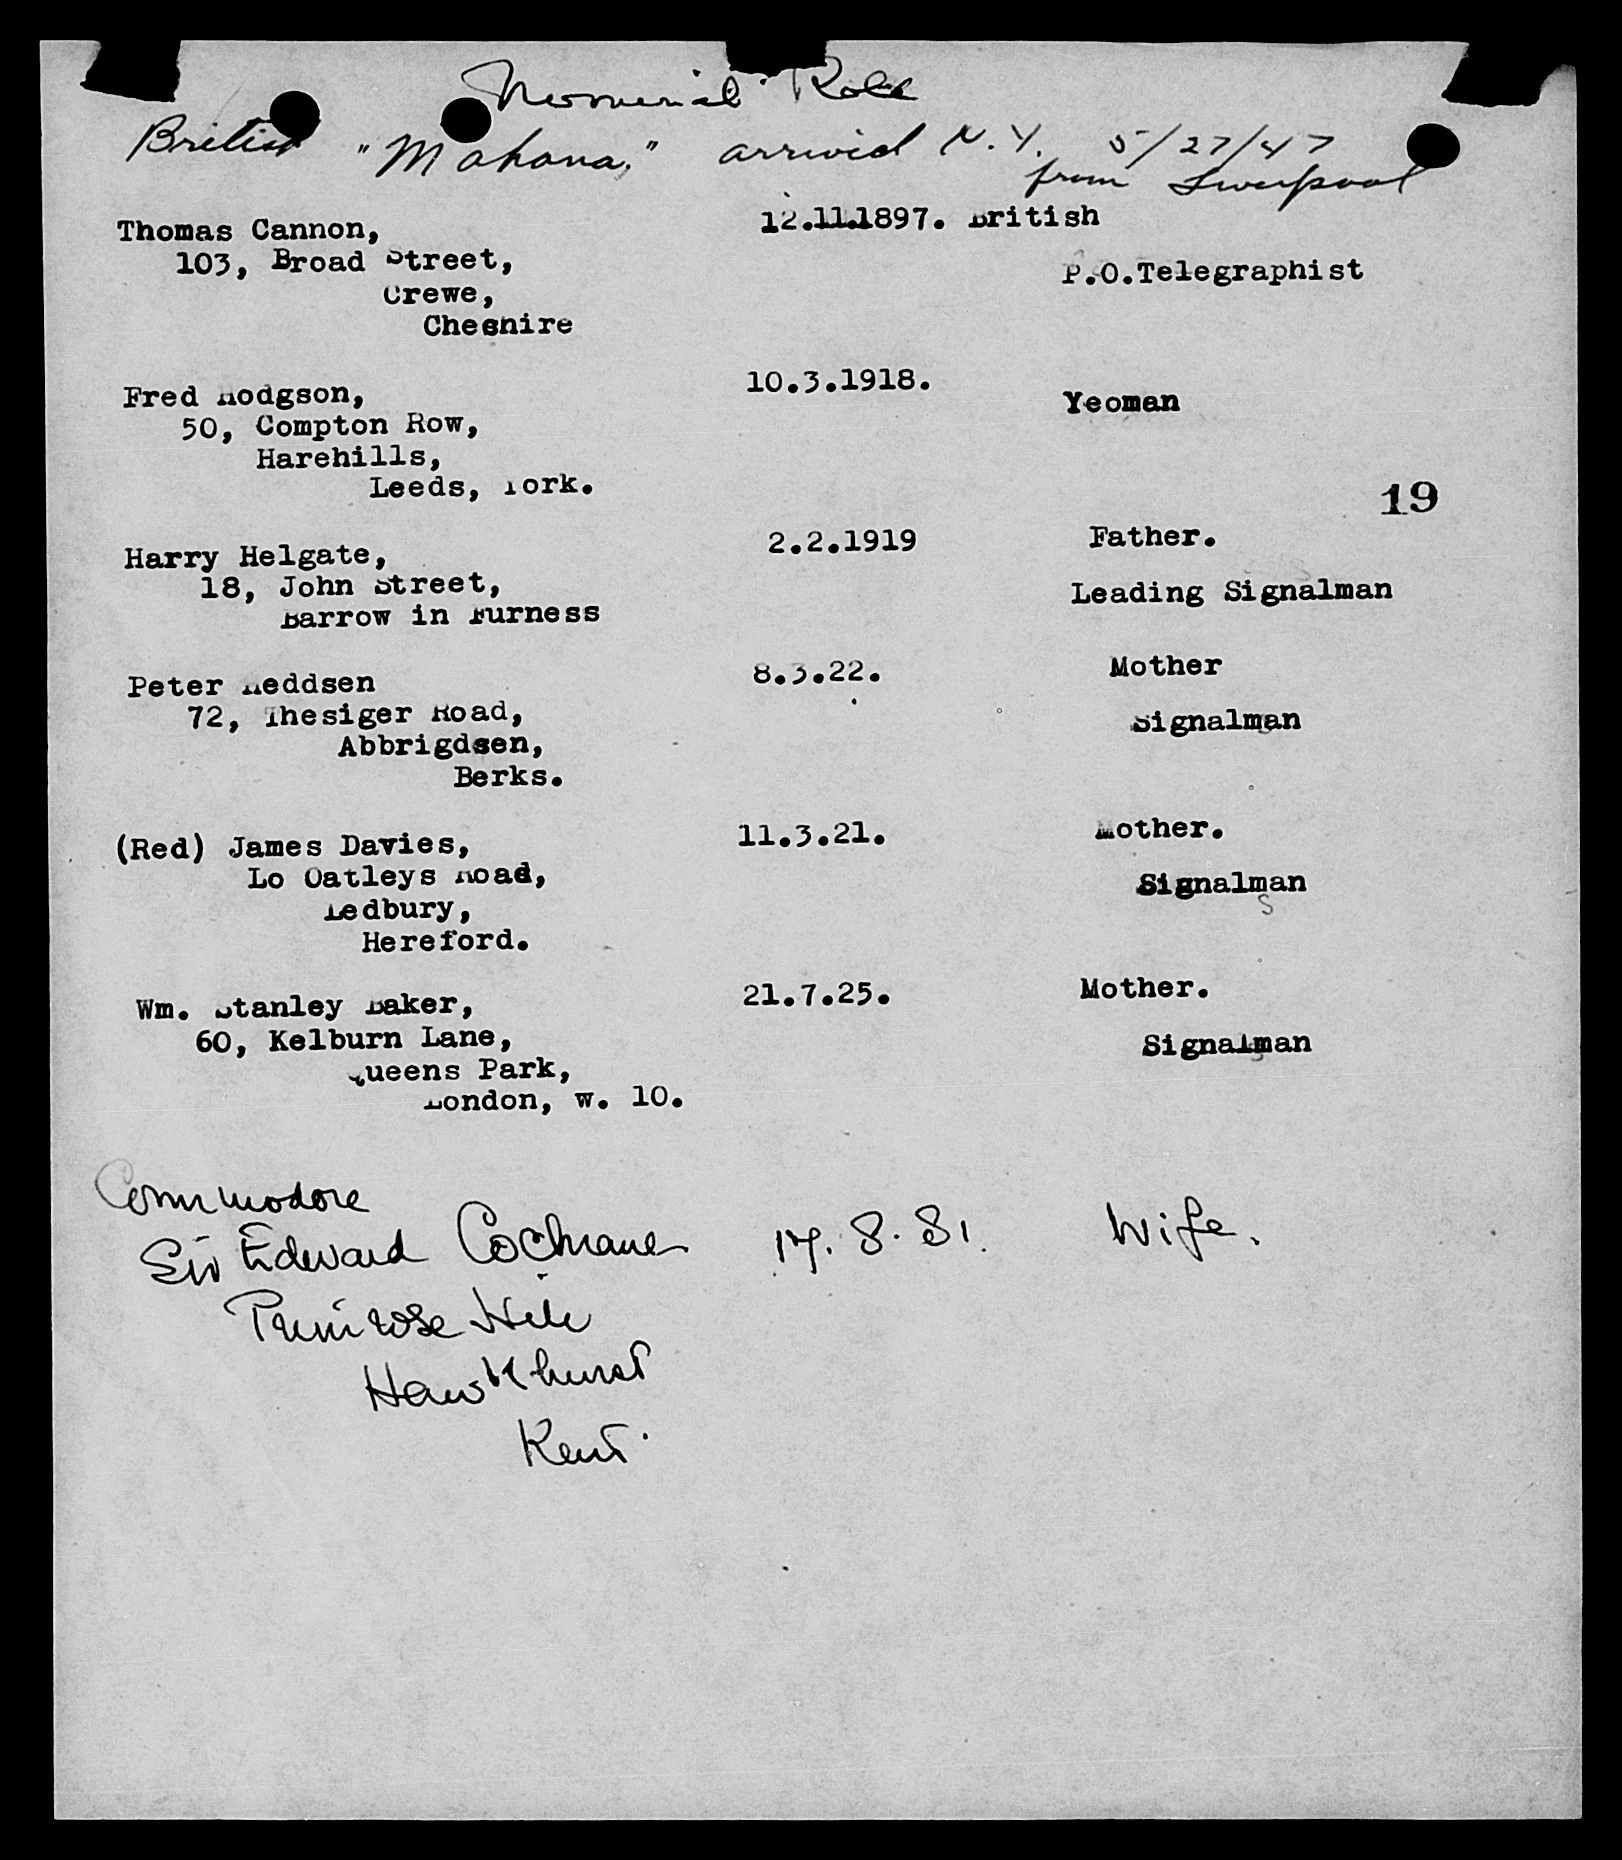 Memorial Roll
British "Mahana," arrived N.Y. 5/27/47
from Liverpool
Thomas Cannon, 12.11.1897. British
103, Broad Street, P.O.Telegraphist
Crewe,
Cheshire
Fred Hodgson, 10.3.1918.
50, Compton Row, Yeoman
Harehills,
Leeds, York.
19
Harry Helgate, 2.2.1919 Father.
18, John Street, Leading Signalman
Barrow in Furness
Peter Heddsen 8.3.22. Mother
72, Thesiger Road, Signalman
Abbrigdsen,
Berks.
(Red) James Davies, 11.3.21. Mother.
Lo Oatleys Road, Signalman
Ledbury,
Hereford.
Wm. Stanley Baker, 21.7.25. Mother.
60, Kelburn Lane, Signalman
Queens Park,
London, W. 10.
Commodore
Sir Edward Cochrane 17.8.81. Wife.
Primrose Hill
Hawkhurst
Kent.